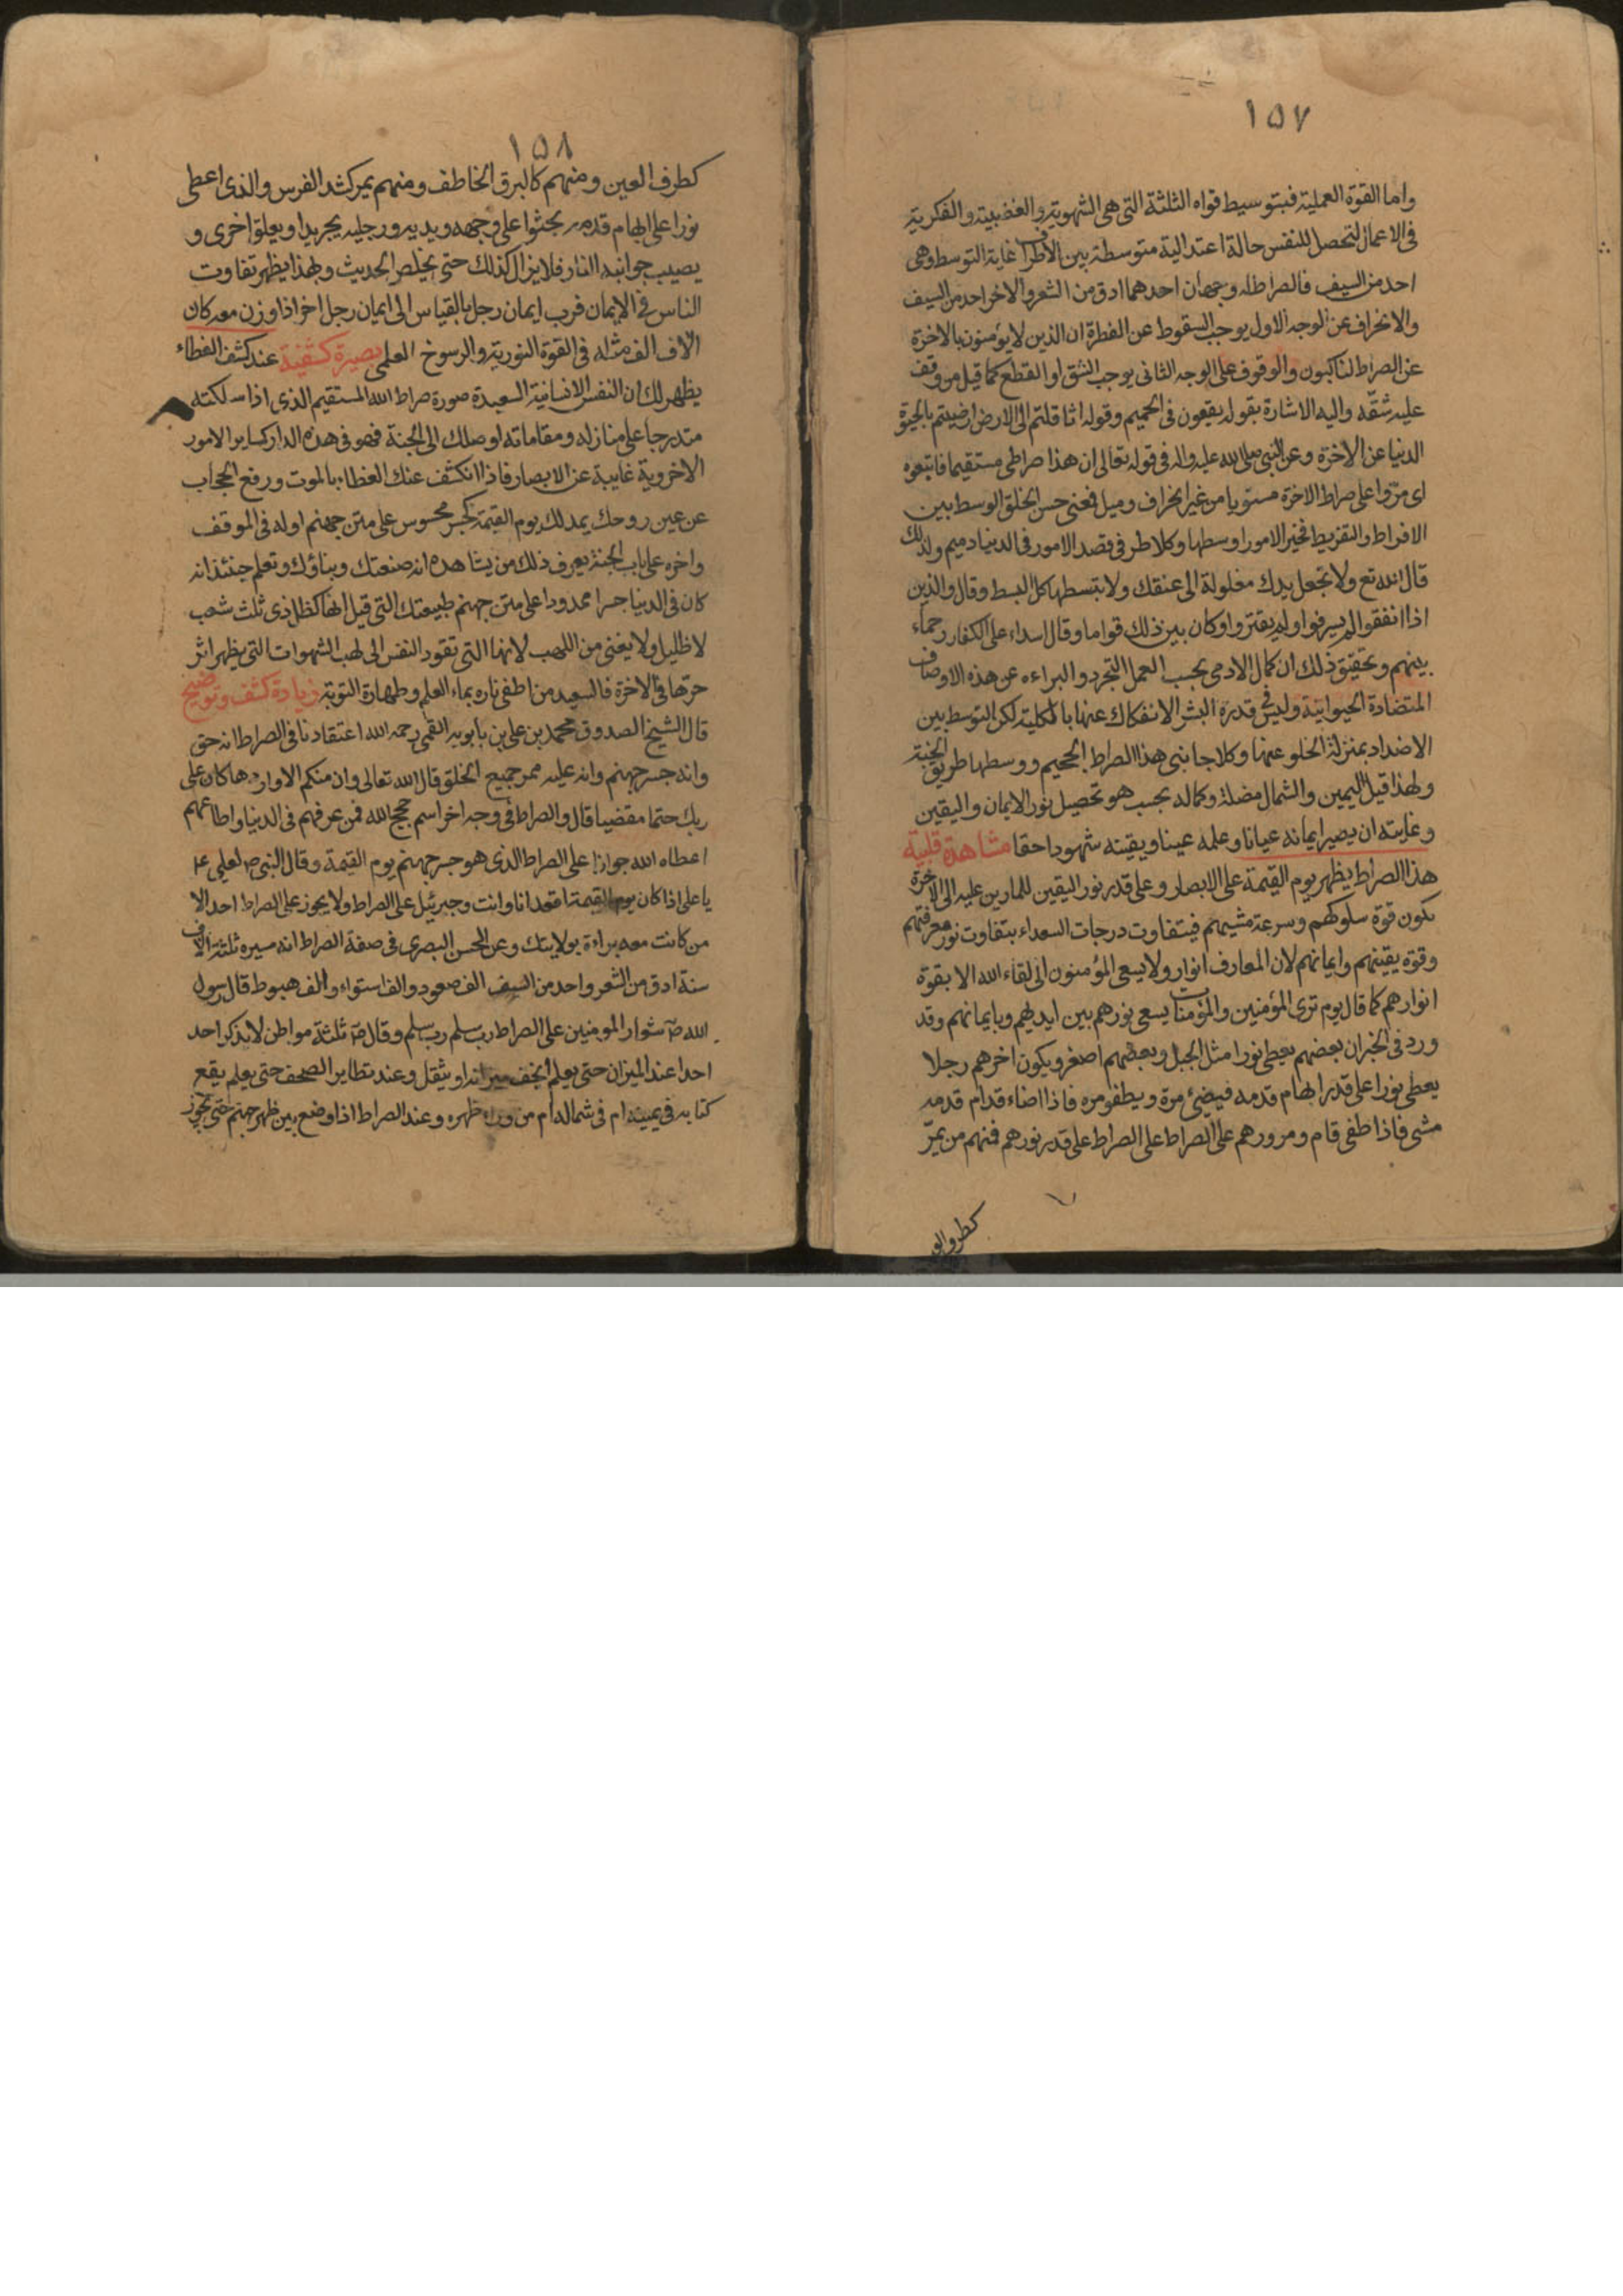 ١٥٧
واما القوة العملية فبتوسيط قواه الثلثة التى هى الشهوية والغضبية والفكرية
فى الاعمال لتحصل للنفس حالة اعتدالية متوسطة بين الاطراف غاية التوسط وهى
احد من السيف فالصراط له وجهان احدهما ادق من الشعر والاخر احد من السيف
والانحراف عن الوجه الاول يوجب السقوط عن الفطرة ان الذين لا يؤمنون بالاخرة
عن الصراط لناكبون والوقوف على الوجه الثانى يوجب الشق او القطع كما قيل من وقف
عليه شقه واليه الاشارة بقوله يقعون فى الحميم وقوله اثاقلتم الى الارض ارضيتم بالحيوة
الدنيا عن الاخرة وعن النبى صلى الله عليه واله فى قوله تعالى ان هذا صراطى مستقيما فاتبعوه
اى مرّوا على صراط الاخرة مستويا من غير انحراف وميل فمعنى حسن الخلق الوسط بين
الافراط والتفريط فخير الامور اوسطها وكلا طرفى قصد الامور فى الدنيا ذميم ولذلك
قال الله تع ولا تجعل يدك مغلولة الى عنقك ولا تبسطها كل البسط وقال والذين
اذا انفقوا لم يسرفوا ولم يقتروا وكان بين ذلك قواما وقال اسداء على الكفار رحماء
بينهم وتحقيق ذلك ان كمال الادمى بحسب العمل التجرد والبراءه عن هذه الاوصاف
المتضادة الحيوانية وليس فى قدرة البشر الانفكاك عنها بالكلية لكن التوسط بين
الاضداد بمنزلة الخلو عنها وكلا جانبى هذا الصراط الجحيم ووسطها طريق الجنة
ولهذا قيل اليمين والشمال مضلة وكماله بحسب هو تحصيل نور الايمان واليقين
وغايته ان يصير ايمانه عيانا وعلمه عينا ويقينه شهودا حقا مشاهدة قلبية
هذا الصراط يظهر يوم القيمة على الابصار وعلى قدر نور اليقين للمارين عليه الى الاخرة
يكون قوة سلوكهم وسرعة مشيهم فيتفاوت درجات السعداء بتفاوت نور معرفتهم
وقوة يقينهم وايمانهم لان المعارف انوار ولا يسعى المؤمنون الى لقاء الله الا بقوة
انوارهم كما قال يوم ترى المؤمنين والمؤمنات يسعى نورهم بين ايديهم وبايمانهم وقد
ورد فى الخبر ان بعضهم يعطى نورا مثل الجبل وبعضهم اصغر ويكون اخرهم رجلا
يعطى نورا على قدر ابهام قدمه فيضئ مرة ويطفو مره فاذا اضاء قدام قدمه
مشى فاذا طفى قام ومرورهم على الصراط على الصراط على قدر نورهم فمنهم من يمرّ
١٥٨
كطرف العين ومنهم كالبرق الخاطف ومنهم يمر كشد الفرس والذى اعطى
نورا على ابهام قدمه يجثوا على وجهه ويديه ورجليه يجر يدا ويعلق اخرى و
يصيب جوانبه النار فلا يزال كذلك حتى يخلص الحديث وبهذا يظهر تفاوت
الناس فى الايمان فرب ايمان رجل بالقياس الى ايمان رجل اخر اذا وزن معه كان
الآف الف مثله فى القوة النورية والرسوخ العلمى بصيرة كشفية عند كشف الغطاء
يظهر لك ان النفس الانسانية السعيدة صورة صراط الله المستقيم الذى اذا سلكته
متدرجا على منازله ومقاماته اوصلك الى الجنة فهو فى هذه الدار كساير الامور
الاخروية غايبة عن الابصار فاذا انكشف عنك الغطاء بالموت ورفع الحجاب
عن عين روحك يمد لك يوم القيمة كجسر محسوس على متن جهنم اوله فى الموقف
واخره على باب الجنة يعرف ذلك من يشاهده انه صنعتك وبناؤك وتعلم حينئذ انه
كان فى الدنيا جسرا ممدودا على متن جهنم طبيعتك التى قيل انها كظل ذى ثلث شعب
لا ظليل ولا يغنى من اللهب لانها التى تقود النفس الى لهب الشهوات التى يظهر اثر
حرّها فى الاخرة فالسعيد من اطفى ناره بماء العلم وطهارة التوبة زيادة كشف وتوضيح
قال الشيخ الصدوق محمد بن على بن بابويه القمى رحمه الله اعتقادنا فى الصراط انه حق
وانه جسر جهنم وانه عليه ممر جميع الخلق قال الله تعالى وان منكم الا واردها كان على
ربك حتما مقضيا قال والصراط فى وجه اخر اسم حجج الله فمن عرفهم فى الدنيا واطاعهم
اعطاه الله جوازا على الصراط الذى هو جسر جهنم يوم القيمة وقال النبى ص لعلى ع
يا على اذا كان يوم القيمة اقعد انا وانت وجبرئيل على الصراط ولا يجوز على الصراط احد الا
من كانت معه براءة بولايتك وعن الحسن البصرى فى صفة الصراط انه مسيره ثلثة الاف
سنة ادق من الشعر واحد من السيف الف صعود والف استواء والف هبوط قال رسول
الله ص شوار المومنين على الصراط رب سلم رب سلم وقال ص ثلثة مواطن لا يذكر احد
احدا عند الميزان حتى يعلم ايخف ميزانه او يثقل وعند تطاير الصحف حتى يعلم يقع
كتابه فى يمينه ام فى شماله ام من وراء ظهره وعند الصراط اذا وضع بين ظهر جهنم حتى يجوز